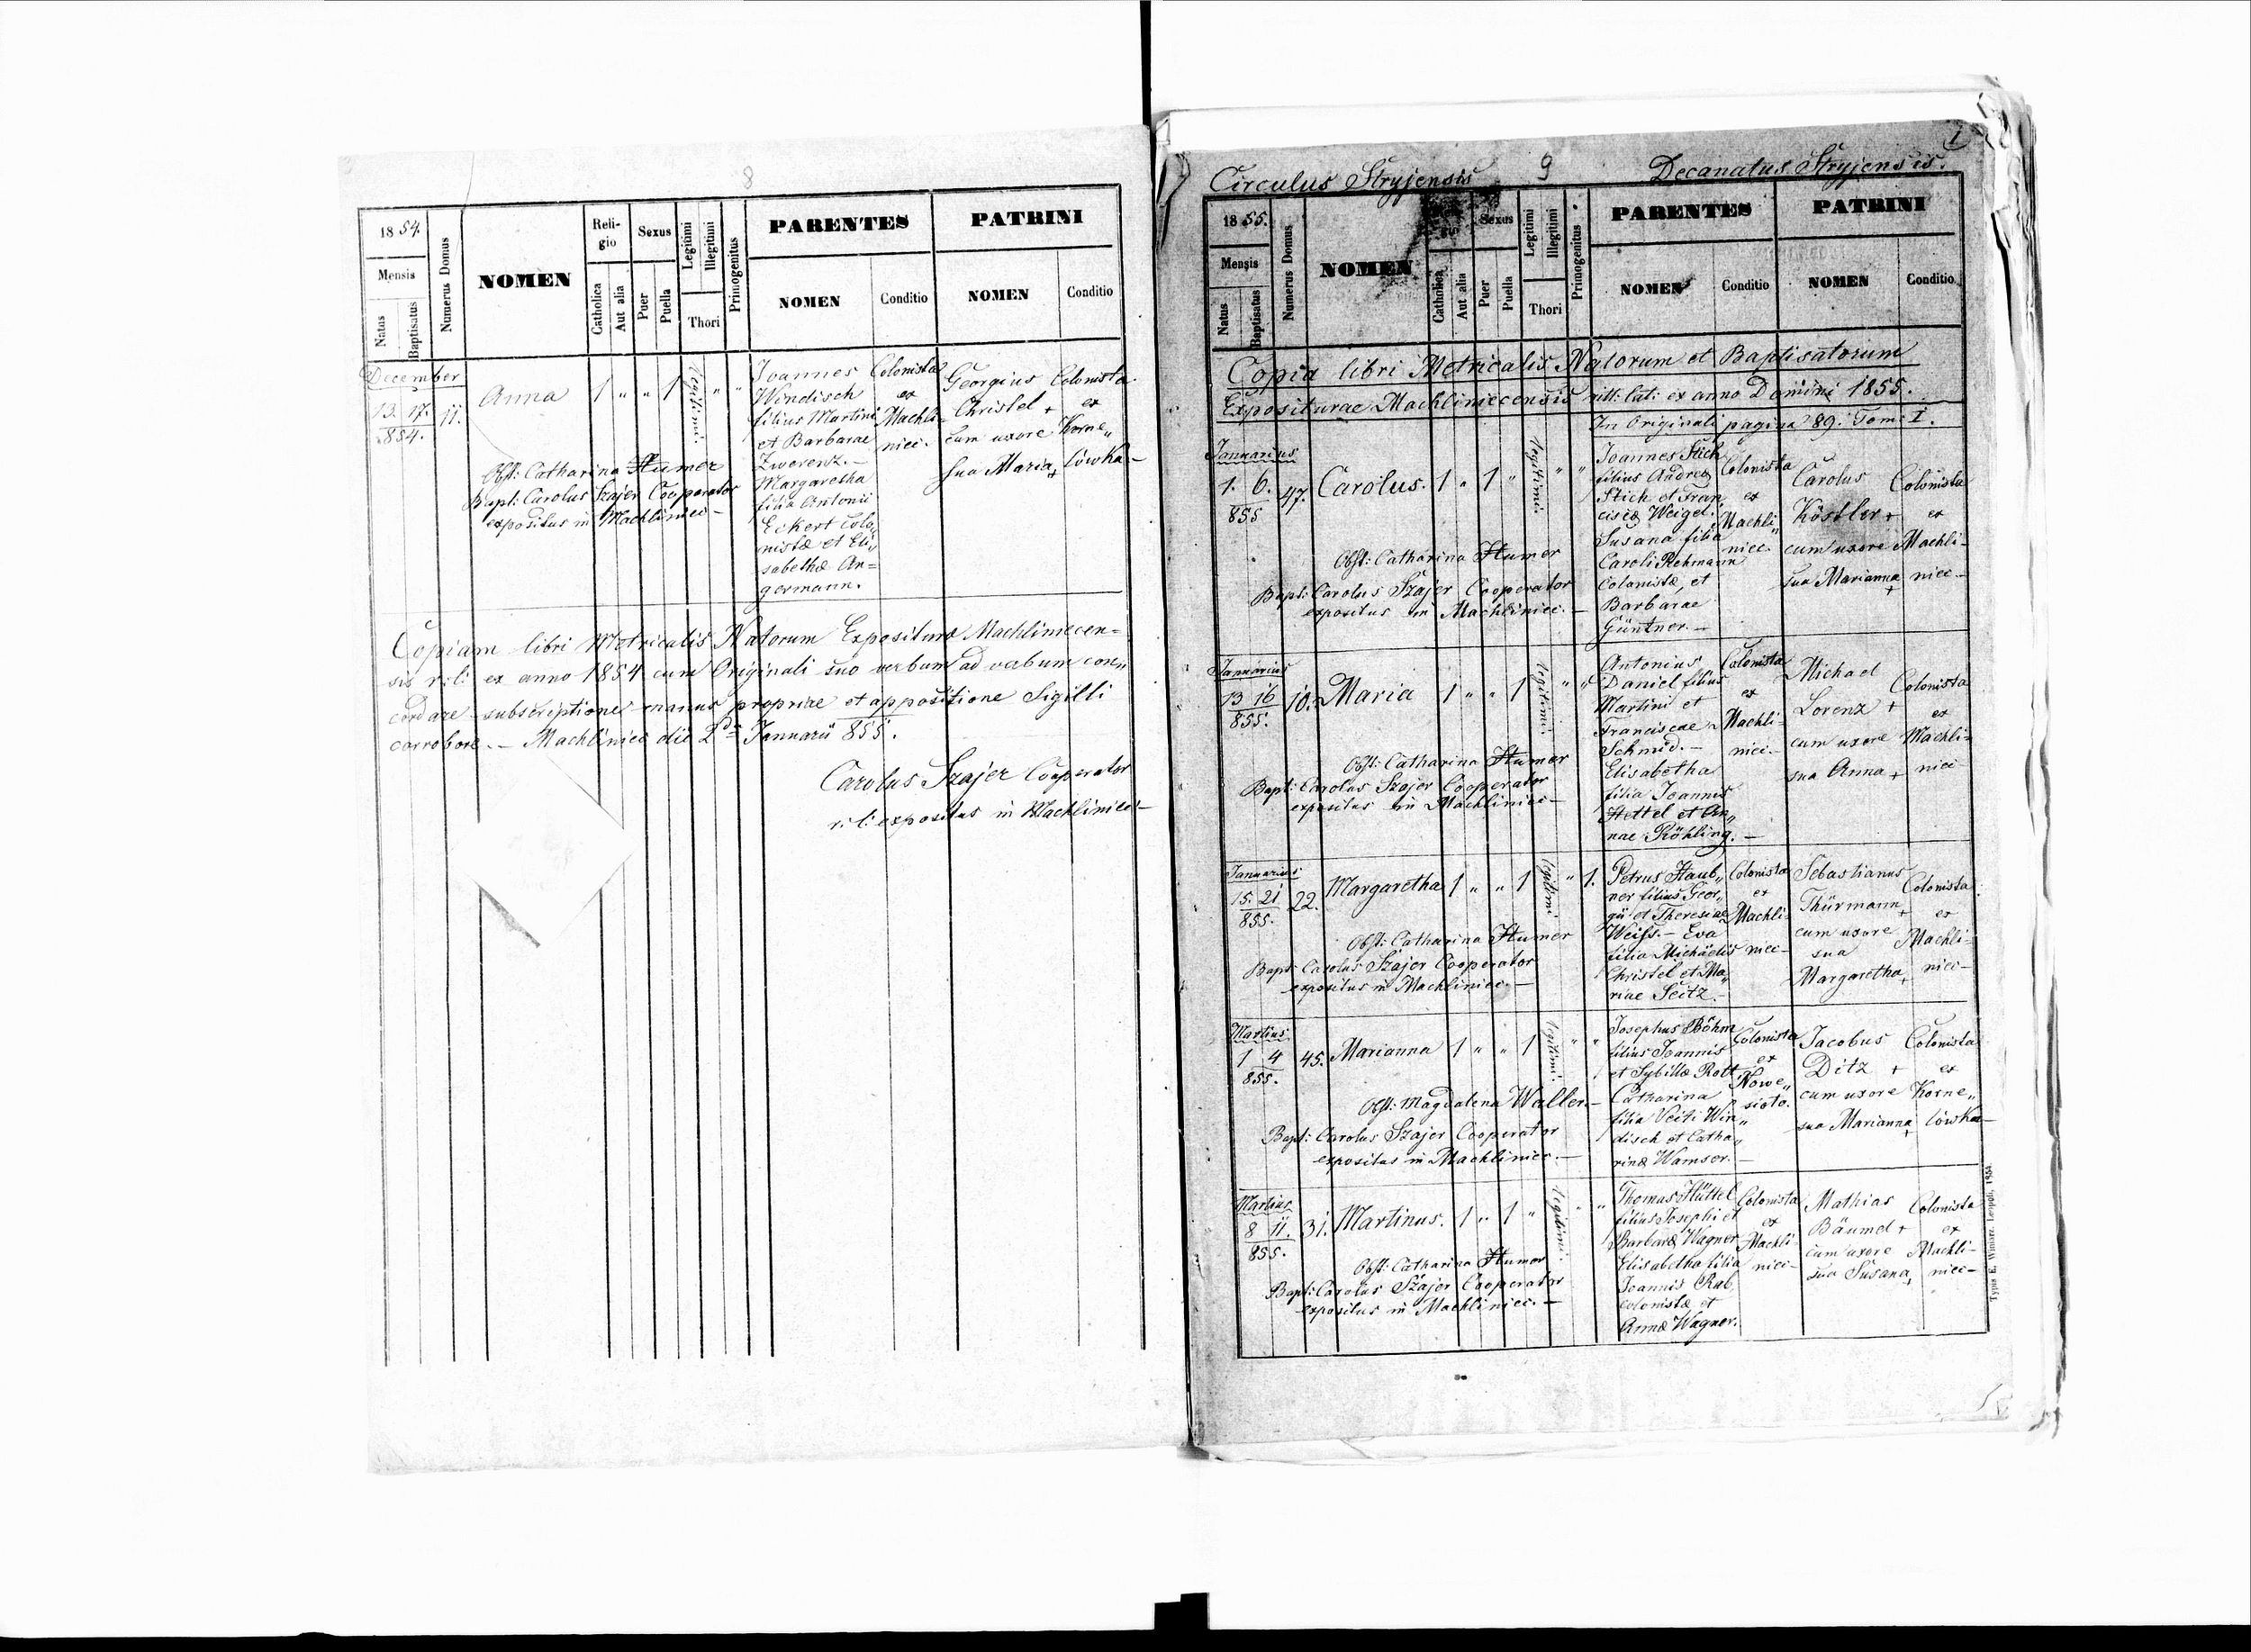 8
18 54.
Mensis
Natus
Baptisatus
Numerus Domus
NOMEN
Reli-
gio
Catholica
Aut alia
Sexus
Puer
Puella
Legitimi
Illegitimi
Thori
Primogenitus
PARENTES
NOMEN
Conditio
PATRINI
NOMEN
Conditio
December
13. 17.
854.
11.
Anna
1 " " 1 legitimi " "
Joannes
Windisch
filius Martini
et Barbarae
Zworenz.—
Margaretha
filia Antonii
Eckert Colo„
nistæ et Eli„
sabethæ An=
germann.
Colonista
ex
Machli-
niec.
Georgius
Christel +
cum uxore
sua Maria +
Colonista
ex
Korne„
lówka.—
Obst: Catharina Humer
Bapt: Carolus Szajer Cooperator
expositus in Machliniec—
Copiam libri Metricalis Natorum Expositurae Machliniecen=
sis r: l: ex anno 1854 cum Originali suo verbum ad verbum con„
cordare subscriptione manus propriae et appositione Sigilli
corrobore.— Machliniec die 2da Januarii 855.
Carolus Szajer Cooperator
r: l: expositus in Machliniec—
1
Circulus Stryjensis
9
Decanatus Stryjensis.
18 55.
Mensis
Natus
Baptisatus
Numerus Domus
NOMEN
gio
Catholica
Aut alia
Sexus
Puer
Puella
Legitimi
Illegitimi
Thori
Primogenitus
PARENTES
NOMEN
Conditio
PATRINI
NOMEN
Conditio
Copia libri Metricalis Natorum et Baptisatorum
Expositurae Machliniecensis ritt: lat: ex anno Domini 1855.
In Originali pagina 89. Tom: I.
Januarius
1. 6.
855
47.
Carolus.
1 " 1 " legitimi " "
Joannes Stich
filius Andreæ
Stich et Fran„
ciscæ Weigel.
Susana filia
Caroli Rehmann
Colonistæ, et
Barbarae
Güntner.—
Colonista
ex
Machli„
niec.
Carolus
Köstler +
cum uxore
sua Marianna +
Colonista
ex
Machli-
niec—
Obst: Catharina Humer
Bapt: Carolus Szajer Cooperator
expositus in Machliniec.—
Januarius
13 16
855.
10.
Maria
1 " " 1 legitimi " "
Antonius
Daniel filius
Martini et
Franciscae
Schmid.—
Elisabetha
filia Joannis
Hettel et An„
nae Röhling.—
Colonista
ex
Machli-
niec.—
Michael
Lorenz +
cum uxore
sua Anna +
Colonista
ex
Machli=
niec
Obst: Catharina Humer
Bapt: Carolus Szajer Cooperator
expositus in Machliniec—
Januarius
15. 21
855.
22.
Margaretha
1 " " 1 legitimi " 1.
Petrus Haub„
ner filius Geor„
gii et Theresiae
Weiss.— Eva
filia Michaelis
Christel et Ma„
riae Seitz.—
Colonista
ex
Machli-
niec—
Sebastianus
Thürmann +
cum uxore
sua
Margaretha +
Colonista
ex
Machli=
niec—
Obst: Catharina Humer
Bapt: Carolus Szajer Cooperator
expositus in Machliniec.—
Martius
1 4
855.
45.
Marianna
1 " " 1 legitimi " "
Josephus Böhm
filius Joannis
et Sybillæ Rott
Catharina
filia Veiti Win„
disch et Catha„
rinæ Wamser.—
Colonista
ex
Nowe„
sioło.
Jacobus
Ditz +
cum uxore
sua Marianna +
Colonista
ex
Korne„
lówka—
Obst: Magdalena Waller.—
Bapt: Carolus Szajer Cooperator
expositus in Machliniec.—
Martius
8 11.
855.
31.
Martinus.
1 " 1 " legitimi " "
Thomas Hüttel
filius Josephi et
Barbaræ Wagner
Elisabetha filia
Joannis Rab
colonistæ et
Annæ Wagner.
Colonista
ex
Machli-
niec—
Mathias
Bäuml +
cum uxore
sua Susana +
Colonista
ex
Machli-
niec—
Obst: Catharina Humer
Bapt: Carolus Szajer Cooperator
expositus in Machliniec.—
Typis E. Winiarz. Leopoli, 1854.